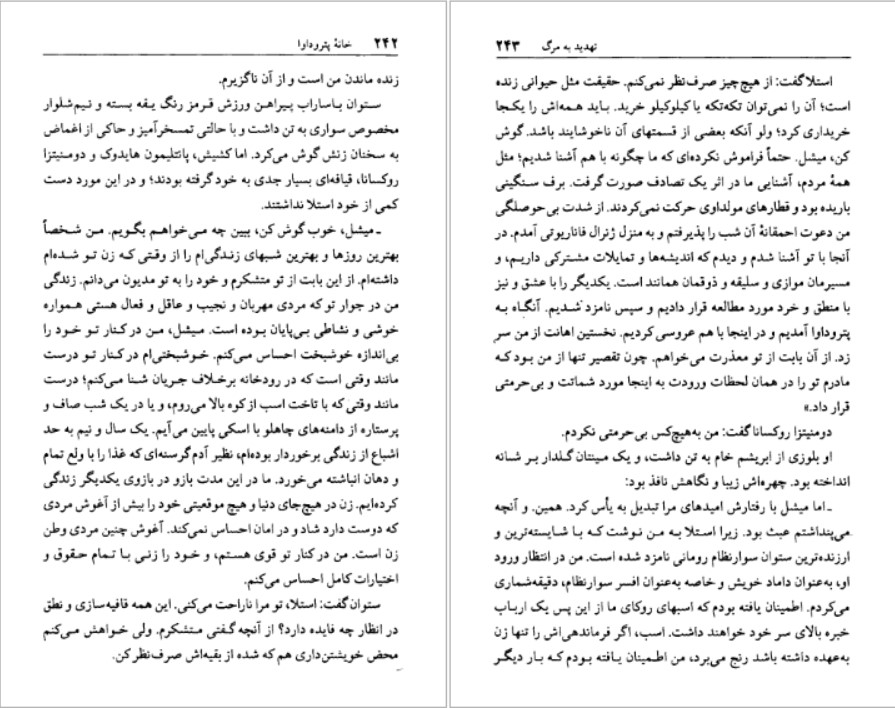 ۲۴۲ خانهٔ پتروداوا
زنده ماندن من است و از آن ناگزیرم.
ستوان باساراب پیراهن ورزش قرمز رنگ یقه بسته و نیم‌شلوار
مخصوص سواری به تن داشت و با حالتی تمسخرآمیز و حاکی از اغماض
به سخنان زنش گوش می‌کرد. اما کشیش، پانتلیمون هایدوک و دومنیتزا
روکسانا، قیافه‌ای بسیار جدی به خود گرفته بودند؛ و در این مورد دست
کمی از خود استلا نداشتند.
ـ میشل، خوب گوش کن، ببین چه می‌خواهم بگویم. من شخصاً
بهترین روزها و بهترین شبهای زندگی‌ام را از وقتی که زن تو شده‌ام
داشته‌ام. از این بابت از تو متشکرم و خود را به تو مدیون می‌دانم. زندگی
من در جوار تو که مردی مهربان و نجیب و عاقل و فعال هستی همواره
خوشی و نشاطی بی‌پایان بوده است. میشل، من در کنار تو خود را
بی‌اندازه خوشبخت احساس می‌کنم. خوشبختی‌ام در کنار تو درست
مانند وقتی است که در رودخانه برخلاف جریان شنا می‌کنم؛ درست
مانند وقتی که با تاخت اسب از کوه بالا می‌روم، و یا در یک شب صاف و
پرستاره از دامنه‌های چاهلو با اسکی پایین می‌آیم. یک سال و نیم به حد
اشباع از زندگی برخوردار بوده‌ام، نظیر آدم گرسنه‌ای که غذا را با ولع تمام
و دهان انباشته می‌خورد. ما در این مدت بازو در بازوی یکدیگر زندگی
کرده‌ایم. زن در هیچ‌جای دنیا و هیچ موقعیتی خود را بیش از آغوش مردی
که دوست دارد شاد و در امان احساس نمی‌کند. آغوش چنین مردی وطن
زن است. من در کنار تو قوی هستم، و خود را زنی با تمام حقوق و
اختیارات کامل احساس می‌کنم.
ستوان گفت: استلا، تو مرا ناراحت می‌کنی. این همه قافیه‌سازی و نطق
در انظار چه فایده دارد؟ از آنچه گفتی متشکرم. ولی خواهش می‌کنم
محض خویشتن‌داری هم که شده از بقیه‌اش صرف‌نظر کن.
تهدید به مرگ ۲۴۳
استلا گفت: از هیچ‌چیز صرف‌نظر نمی‌کنم. حقیقت مثل حیوانی زنده
است؛ آن را نمی‌توان تکه‌تکه یا کیلوکیلو خرید. باید همه‌اش را یکجا
خریداری کرد؛ ولو آنکه بعضی از قسمتهای آن ناخوشایند باشد. گوش
کن، میشل. حتماً فراموش نکرده‌ای که ما چگونه با هم آشنا شدیم؛ مثل
همهٔ مردم، آشنایی ما در اثر یک تصادف صورت گرفت. برف سنگینی
باریده بود و قطارهای مولداوی حرکت نمی‌کردند. از شدت بی‌حوصلگی
من دعوت احمقانهٔ آن شب را پذیرفتم و به منزل ژنرال فاناریوتی آمدم. در
آنجا با تو آشنا شدم و دیدم که اندیشه‌ها و تمایلات مشترکی داریم، و
مسیرمان موازی و سلیقه و ذوقمان همانند است. یکدیگر را با عشق و نیز
با منطق و خرد مورد مطالعه قرار دادیم و سپس نامزد شدیم. آنگاه به
پتروداوا آمدیم و در اینجا با هم عروسی کردیم. نخستین اهانت از من سر
زد. از آن بابت از تو معذرت می‌خواهم. چون تقصیر تنها از من بود که
مادرم تو را در همان لحظات ورودت به اینجا مورد شماتت و بی‌حرمتی
قرار داد.»
دومنیتزا روکسانا گفت: من به‌هیچ‌کس بی‌حرمتی نکردم.
او بلوزی از ابریشم خام به تن داشت، و یک مینتان گلدار بر شانه
انداخته بود. چهره‌اش زیبا و نگاهش نافذ بود:
ـ اما میشل با رفتارش امیدهای مرا تبدیل به یأس کرد. همین. و آنچه
می‌پنداشتم عبث بود. زیرا استلا به من نوشت که با شایسته‌ترین و
ارزنده‌ترین ستوان سوارنظام رومانی نامزد شده است. من در انتظار ورود
او، به‌عنوان داماد خویش و خاصه به‌عنوان افسر سوارنظام، دقیقه‌شماری
می‌کردم. اطمینان یافته بودم که اسبهای روکای ما از این پس یک ارباب
خبره بالای سر خود خواهند داشت. اسب، اگر فرماندهی‌اش را تنها زن
به‌عهده داشته باشد رنج می‌برد، من اطمینان یافته بودم که بار دیگر